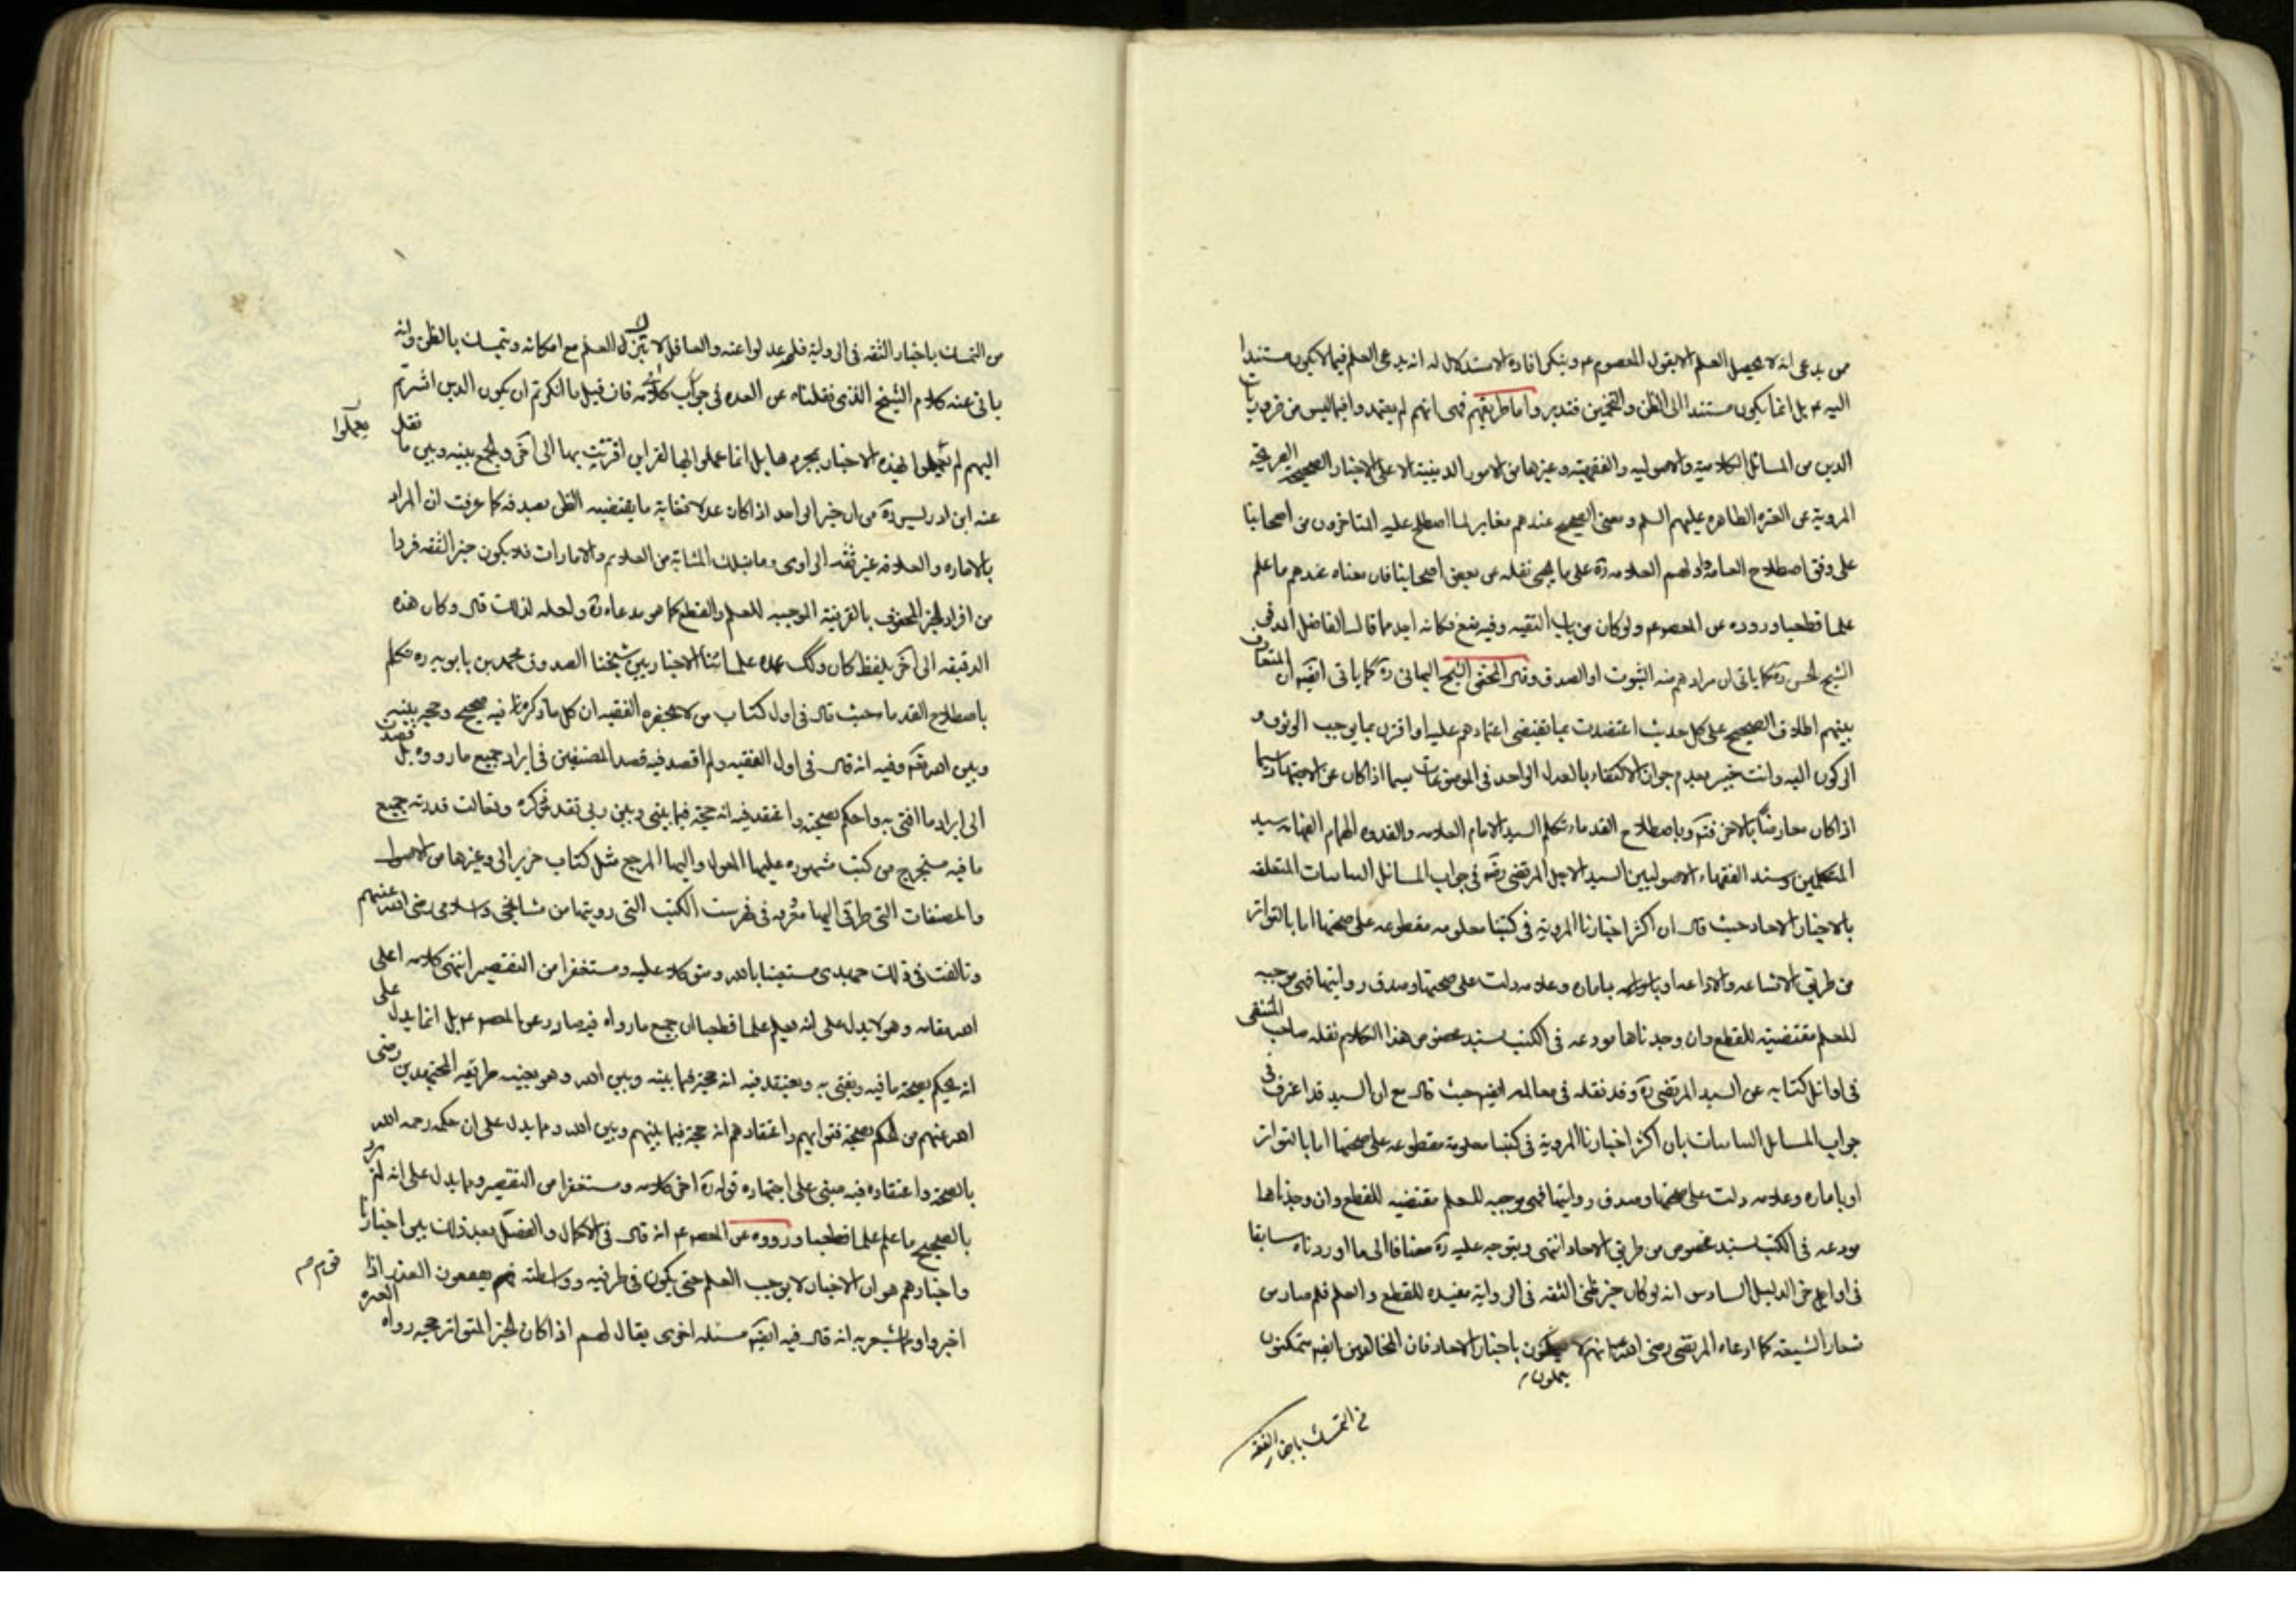 من يدعى انه لا يحصل العلم الا بقول المعصوم ع وينكر افادة الاستدلال له انه يدعى العلم فيما لا يكون مستندا
اليه ع بل انما يكون مستندا الى الظن والتخمين فتدبر واما طريقهم فهى انهم لم يعتمدوا فيما ليس من ضروريات
الدين من المسائل الكلامية والاصوليه والفقهية وغيرها من الامور الدينية الا على الاخبار الصحيحه الصريحة
المروية عن العترة الطاهره عليهم السلم ومعنى الصحيح عندهم مغاير لما اصطلح عليه المتاخرون من اصحابنا
على وفق اصطلاح العامه واولهم العلامه ره على ما يجى نقله عن بعض اصحابنا فان معناه عندهم ما علم
علما قطعيا وروده عن المعصوم ولو كان من باب التقيه وفيه منع فكانه ايد ما قال الفاضل المدقق
الشيخ حسن ره كما ياتى ان مرادهم منه الثبوت او الصدق وقال المحقق الشيخ البهائى ره كما ياتى ايضا ان المتعارف
بينهم اطلاق الصحيح على كل حديث اعتضدت بما يقتضى اعتمادهم عليه او اقترن بما يوجب الوثوق و
الركون اليه وانت خبير بعدم جواز الاكتفاء بالعدل الواحد فى الموضوعات سيما اذا كان عن الاجتهاد سيما
اذا كان معارضا بالاخر فتم وباصطلاح القدماء تكلم السيد الامام العلامه والقدوه الهمام الفهامه سيد
المتكلمين وسند الفقهاء الاصوليين السيد الاجل المرتضى رضه فى جواب المسائل التباينات المتعلقه
بالاخبار الاحاد حيث قال ان اكثر اخبارنا المروية فى كتبنا معلومه مقطوعه على صحتها اما بالتواتر
من طريق الاشاعه والاذاعه او بامارة وعلامه دلت على صحتها وصدق رواتها فهى موجبه
للعلم مقتضية للقطع وان وجدناها مودعه فى الكتب بسند مخصوص هذا الكلام نقله صاحب المنتقى
فى اوائل كتابه عن السيد المرتضى ره وقد نقله فى معالمه ايضا حيث قال مع ان السيد قد اعترف فى
جواب المسائل التباينات بان اكثر اخبارنا المروية فى كتبنا معلومة مقطوعه على صحتها اما بالتواتر
او بامارة وعلامه دلت على صحتها وصدق رواتها فهى موجبه للعلم مقتضيه للقطع وان وجدناها
مودعه فى الكتب بسند مخصوص من طريق الاحاد انتهى ويتوجه عليه ره مضافا الى ما اوردناه سابقا
فى اوايل الدليل السادس انه لو كان خبر الثقه فى الرواية مفيده للقطع والعلم فلم صار من
شعار الشيعة كما ادعاه المرتضى رضى الله عنه انهم لا يعملون باخبار الاحاد فان المخالفين ايضا يتمكنون
يعملون
من التمسك باخبار الثقه
من التمسك باخبار الثقه فى الرواية فلم عدلوا عنه والعاقل لا يترك العلم مع امكانه ويتمسك بالظن وانه
يابى عنه كلام الشيخ الذى نقلناه عن العده فى جواب كلامه فان قيل ما انكرتم ان يكون الذين اشرتم
اليهم لم يعملوا بهذه الاخبار بمجردها بل انما عملوا بها لقراين اقترنت بها الى اخره والجمع بينه وبين ما نقل
يعملوا
عنه ابن ادريس ره من ان خبر الواحد اذا كان عدلا فغاية ما يقتضيه الظن بصدقه كما عرفت ان المراد
بالاماره والعلامه غير ثقه الراوى وما بتلك المثابة من العلايم والامارات فلا يكون خبر الثقه فردا
من افراد الخبر المحفوف بالقرينة الموجبه للعلم والقطع كما هو مدعاه ره ولعله لذلك قال وكان هذه
الدقيقه الى اخره بلفظ كان وكك عمده علمائنا الاخباريين شيخنا الصدوق محمد بن بابويه ره تكلم
باصطلاح القدماء حيث قال فى اول كتاب من لا يحضره الفقيه ان كل ما ذكره فيه صحيح وحجه بينه
وبين الله تعم وفيه انه قال فى اول الفقيه ولم اقصد فيه قصد المصنفين فى ايراد جميع ما رووه بل قصدت
الى ايراد ما افتى به واحكم بصحته واعتقد فيه انه حجة فيما بينى وبين ربى تقدس ذكره وتعالت قدرته جميع
ما فيه مستخرج من كتب مشهوره عليها المعول واليها المرجع مثل كتاب حريز الى وغيرها من الاصول
والمصنفات التى طرقى اليها معروفه فى فهرست الكتب التى رويتها من مشايخى واسلافى رضى الله عنهم
وبالغت فى ذلك جهدى مستعينا بالله ومتوكلا عليه ومستغفرا من التقصير انتهى كلامه اعلى
الله مقامه وهو لا يدل على انه يعلم علما قطعيا ان جميع ما رواه فيه صادر عن المعصوم ع بل انما يدل على
انه يحكم بصحة ما فيه ويفتى به ويعتقد فيه انه حجة فيما بينه وبين الله وهو بعينه طريقه المجتهدين رضى
الله عنهم من الحكم بصحة فتواهم واعتقادهم انه حجة فيما بينهم وبين الله ومما يدل على ان حكمه رحمه الله
بالصحه واعتقاده فيه مبنى على اجتهاده قوله ره اخر كلامه ومستغفرا من التقصير ومما يدل على انه لم يرد
بالصحيح ما علم علما قطعيا وروده عن المعصوم ع انه قال فى الاكمال والفصل بعد ذلك بين اخبارنا
واخبارهم هو ان الاخبار لا يوجب العلم حتى يكون فى طرفيه وواسطته قوم يقطعون العذر اذا
قوم
اخبروا ومما يشعر به انه قال فيه ايضا مسئله اخرى يقال لهم اذا كان الخبر المتواتر حجه رواه العتره